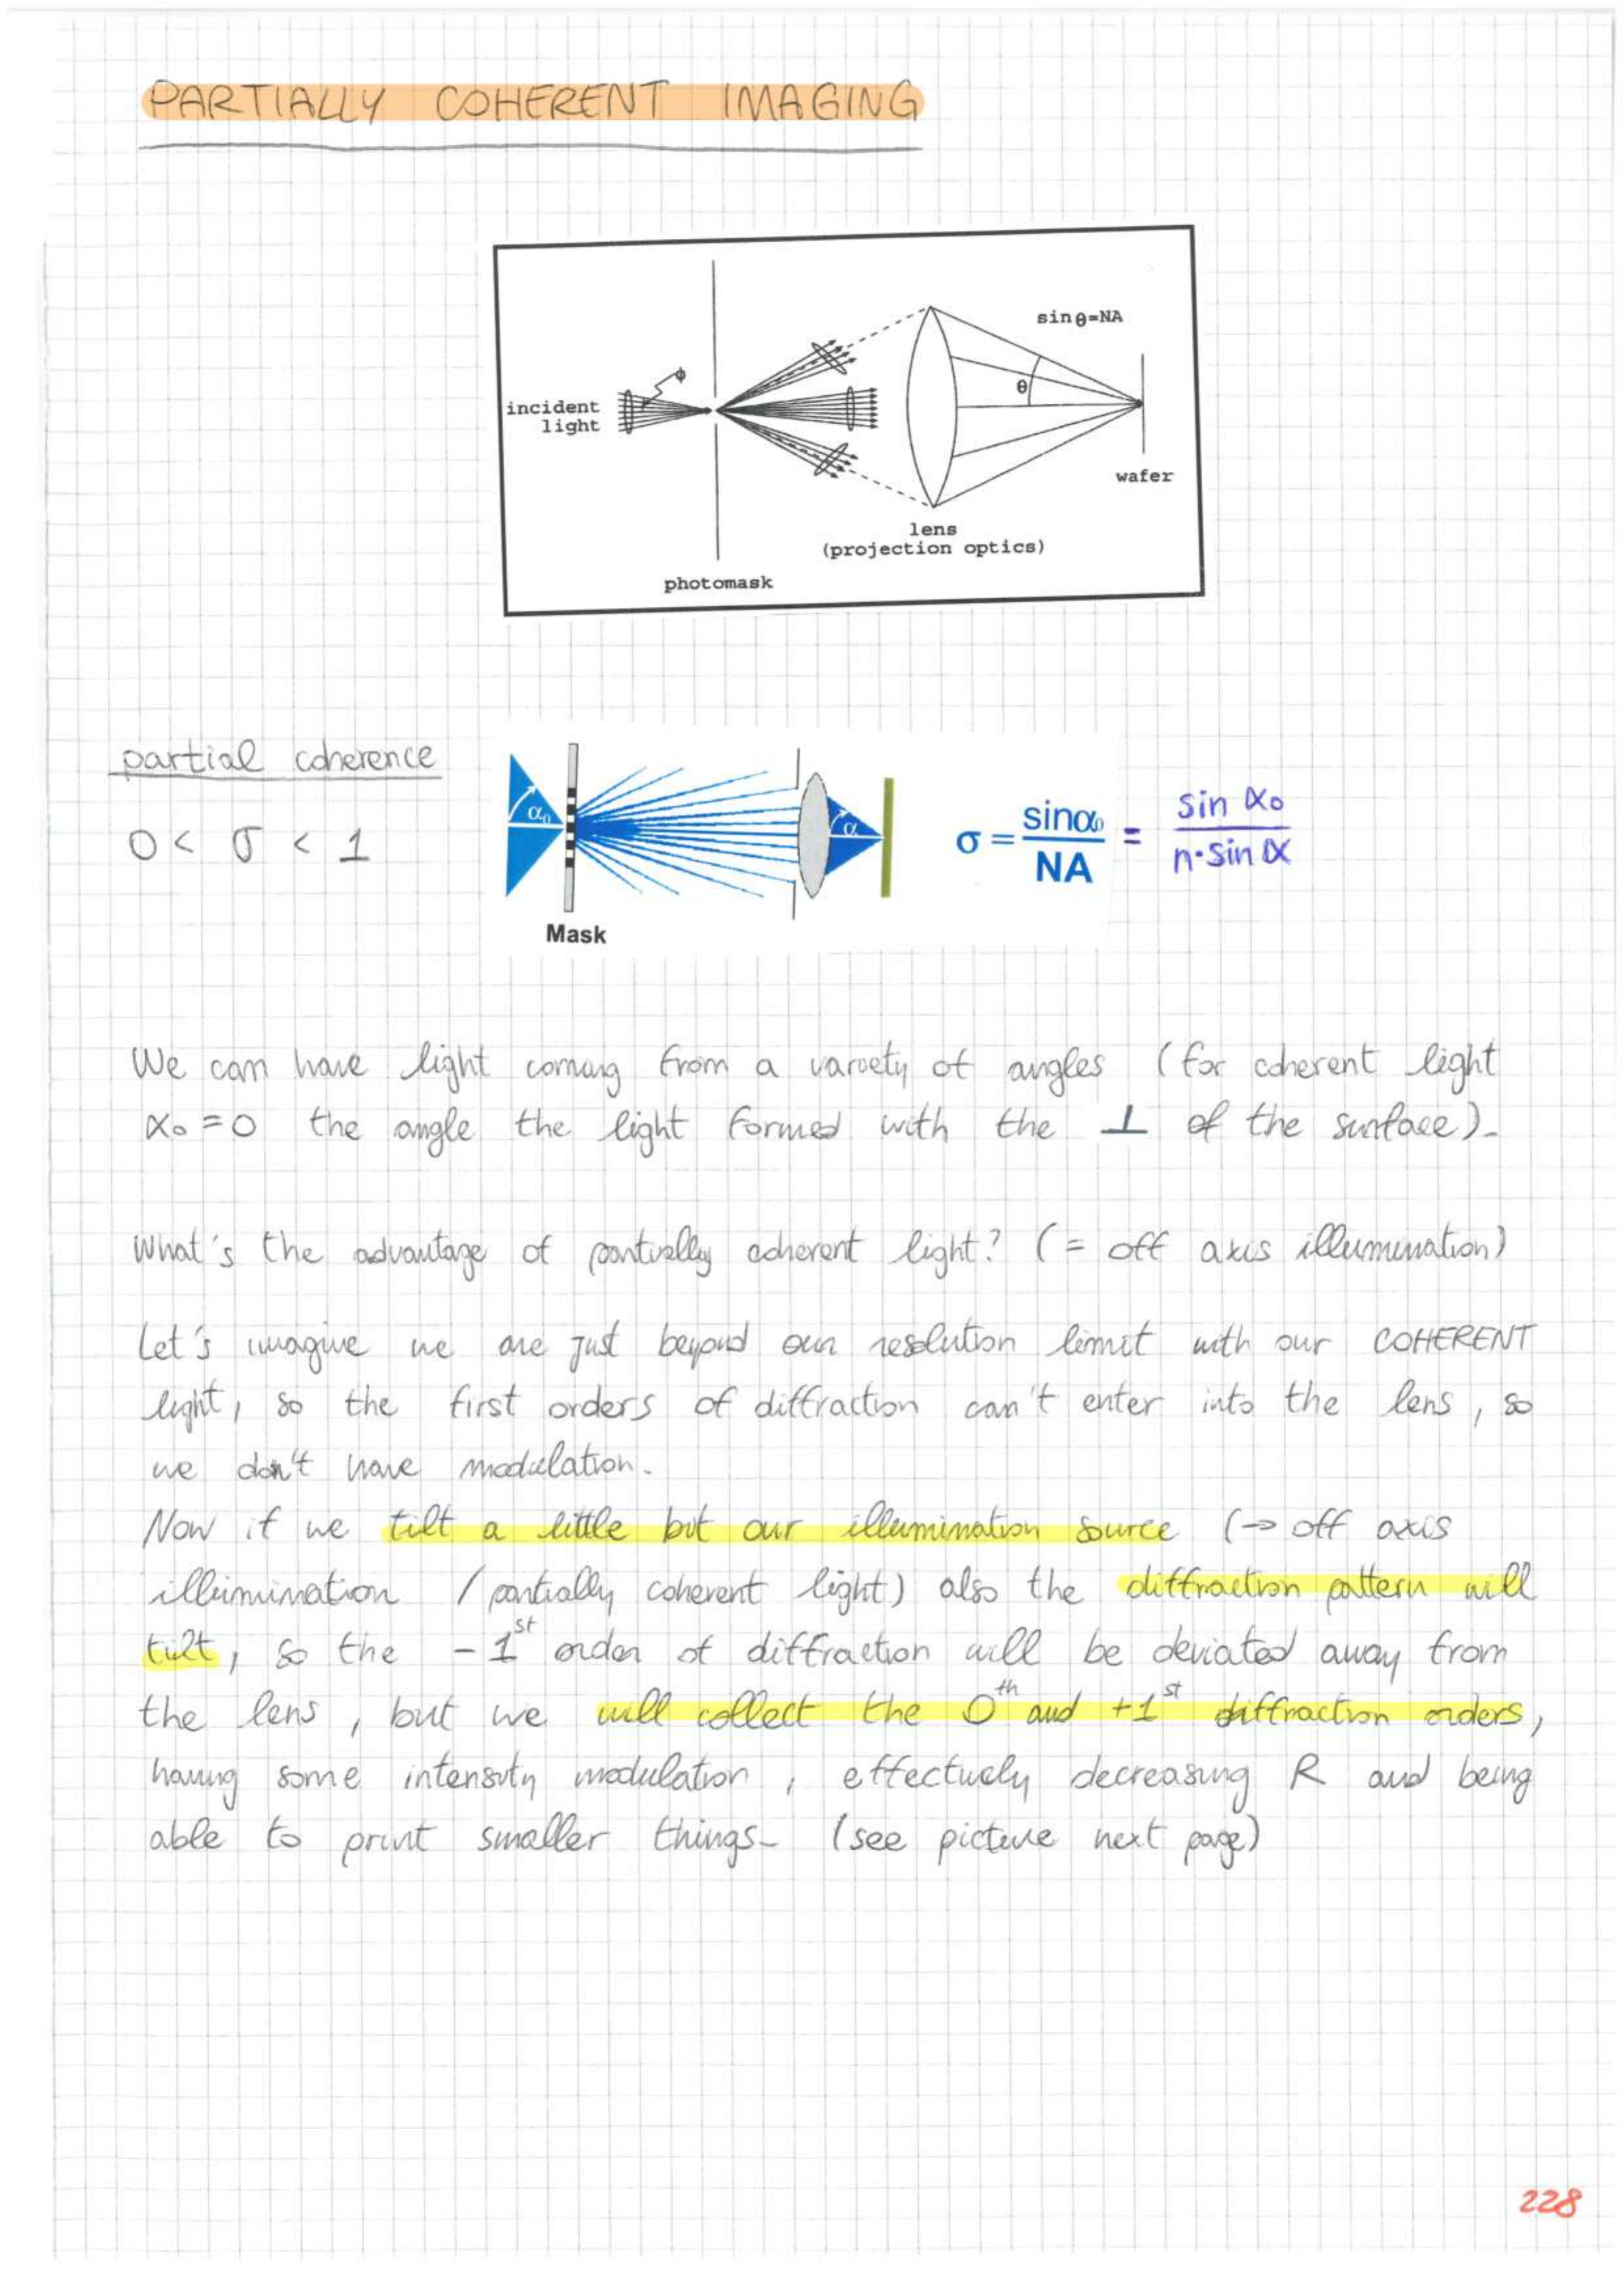 PARTIALLY COHERENT IMAGING
sinθ=NA
ϕ
θ
incident
light
wafer
lens
(projection optics)
photomask
partial coherence
0 < σ < 1
α₀
α
σ = sinα₀ / NA = sin α₀ / n·sin α
Mask
We can have light coming from a variety of angles (for coherent light
α₀ = 0 the angle the light formed with the ⊥ of the surface).
What's the advantage of partially coherent light? (= off axis illumination)
Let's imagine we are just beyond our resolution limit with our COHERENT
light, so the first orders of diffraction can't enter into the lens, so
we don't have modulation.
Now if we tilt a little bit our illumination source (→ off axis
illumination / partially coherent light) also the diffraction pattern will
tilt, so the -1st order of diffraction will be deviated away from
the lens, but we will collect the 0th and +1st diffraction orders,
having some intensity modulation, effectively decreasing R and being
able to print smaller things. (see picture next page)
228